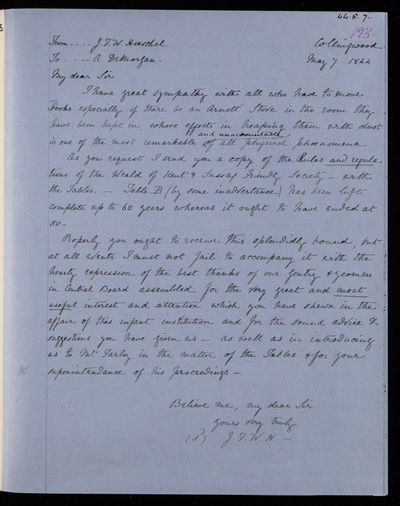 44.5.7.
193
From .... J.F.W. Herschel Collingwood
To ..... A DeMorgan. May 7 1844
My dear Sir
I have great sympathy with all who have to move
Books especially if there be an Arnott Stove in the room they
have been kept in whose effects in heaping them with dust
and unaccountable
is one of the most remarkable of all physical phoenomena
As you request I send you a copy of the Rules and regula-
tions of the Weald of Kent & Sussex Friendly Society - with
the Tables. - Table B (by some inadvertance) has been left
complete up to 65 years whereas it ought to have ended at
50 -
Properly you ought to receive this splendidly bound, but
at all events I must not fail to accompany it with the
hearty expression of the best thanks of our Gentry & yeomen
in Central Board assembled for the very great and most
useful interest and attention which you have shewn in the
affair of this infant institution and for the sound advice &
suggestions you have given us - as well as in introducing
us to Mr. Farley in the matter of the Tables & for your
superintendance of his proceedings -
Believe me, my dear Sir
yours very truly
(s) J.F.W.H -